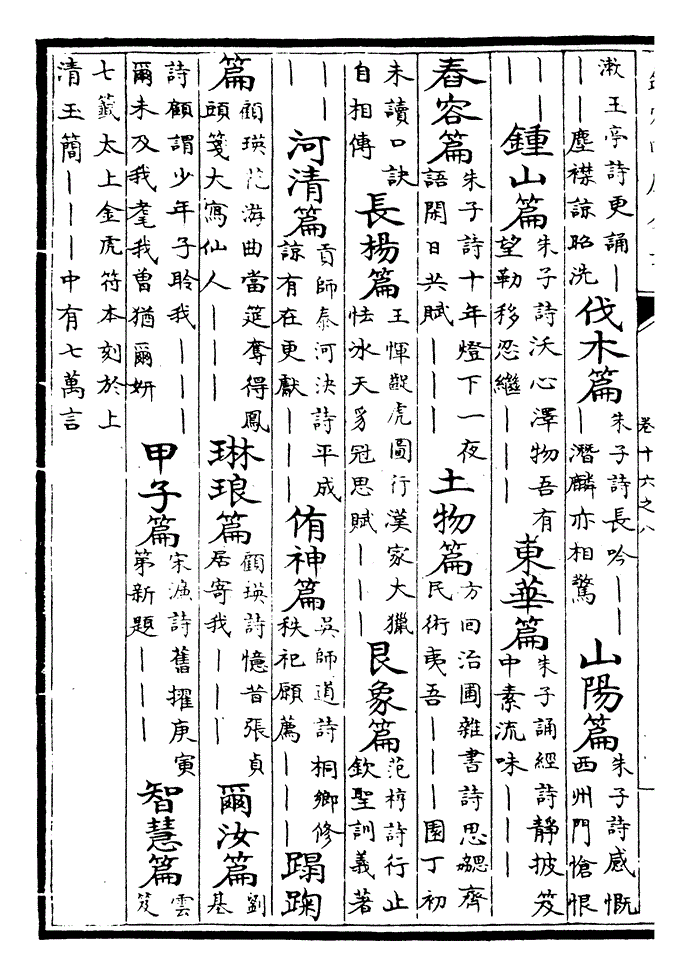 卷十六之八
漱玉亭詩更誦｜｜｜塵襟諒昭洗 伐木篇 朱子詩長吟｜｜｜潛麟亦相驚 山陽篇 朱子詩感慨西州門愴恨
｜｜｜ 鍾山篇 朱子詩沃心澤物吾有望勒移忍繼｜｜｜ 東華篇 朱子誦經詩靜披笈中素流味｜｜｜
舂容篇 朱子詩十年燈下一夜語閑日共賦｜｜｜ 土物篇 方回治圃雜書詩思勰齊民術夷吾｜｜｜園丁初
未讀口訣自相傳 長楊篇 王惲觀虎圖行漢家大獵怯冰天豸冠思賦｜｜｜ 艮象篇 范梈詩行止欽聖訓義著
｜｜｜ 河清篇 貢師泰河決詩平成諒有在更獻｜｜｜ 侑神篇 吳師道詩桐鄉修秩祀願薦｜｜｜ 蹋鞠
篇 顧瑛花游曲當筵奪得鳳頭箋大寫仙人｜｜｜ 琳琅篇 顧瑛詩憶昔張貞居寄我｜｜｜ 爾汝篇 劉基
詩顧謂少年子聆我｜｜｜爾未及我耄我曾猶爾妍 甲子篇 宋濂詩舊擢庚寅第新題｜｜｜ 智慧篇 雲笈
七籤太上金虎符本刻於上清玉簡｜｜｜中有七萬言